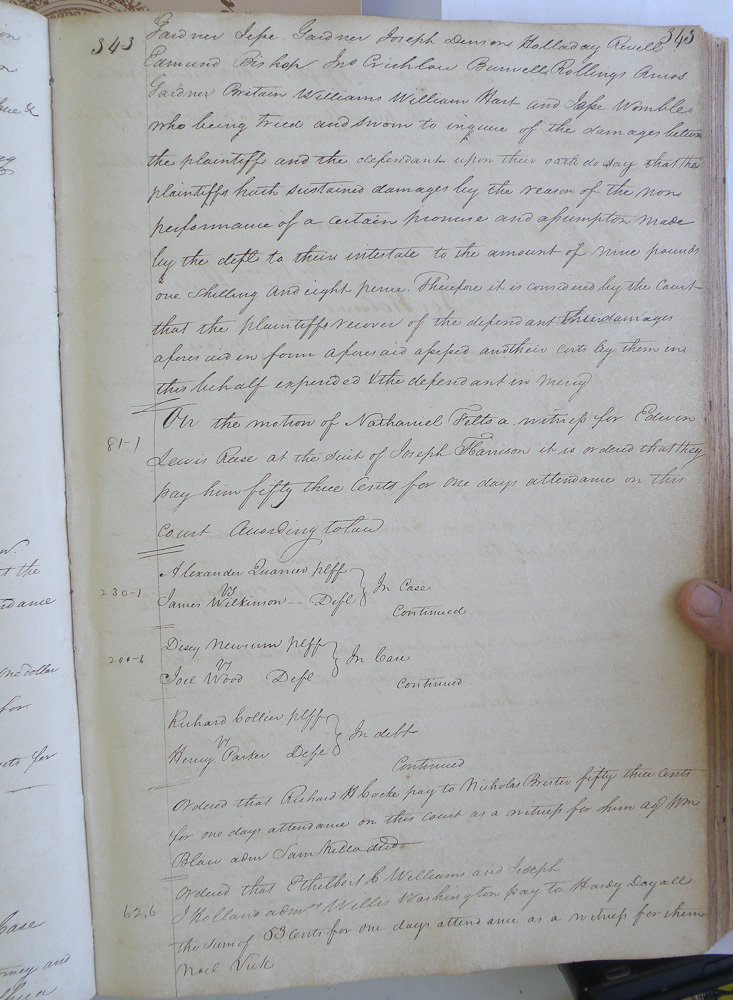 343 343
Gardner Jepe Gardner Joseph Denson Holladay Revill
Edmund Bishop Jno Crichlow Burwell Rollings Amos
Gardner Britain Williams William Hart and Jape Womble
who being tried and sworn to inquire of the damages between
the plaintiffs and the defendant upon their oath do say that the
plaintiffs hath sustained damages by the reason of the non
performance of a certain promise and apumpton made
by the deft to their intestate to the amount of nine pounds
one Shilling and eight pence. Therefore it is considered by the Court
that the plaintiffs recover of the defendant their damages
aforesaid in form aforesaid apeped and their costs by them in
this behalf expended & the defendant in mercy
On the motion of Nathaniel Felts a witnep for Edwin
81-1
Lewis Rese at the suit of Joseph Harrison it is ordered that they
pay him fifty three Cents for one days attendance on this
court According to law
Alexander Quarrier plff
vs
In Case
230-1
James Wilkinson -- Deft
Continued
Desey Newsum plff
vs
In Case
200-6
Joel Wood Deft
Continued
Richard Collier plff
vs
In debt
Henry Parker Deft
Continued
Ordered that Richard H Cocke pay to Nicholas Brister fifty three cents
for one days attendance on this court as a witnep for him agt Wm
Blair adm Sam decd
Ordered that Ethelbert C Williams and Joseph
62.6
J Holland admrs Willis Washington pay to Hardy Dayall
the sum of 53 cents for one days attendance as a witnep for them
Noel Vick